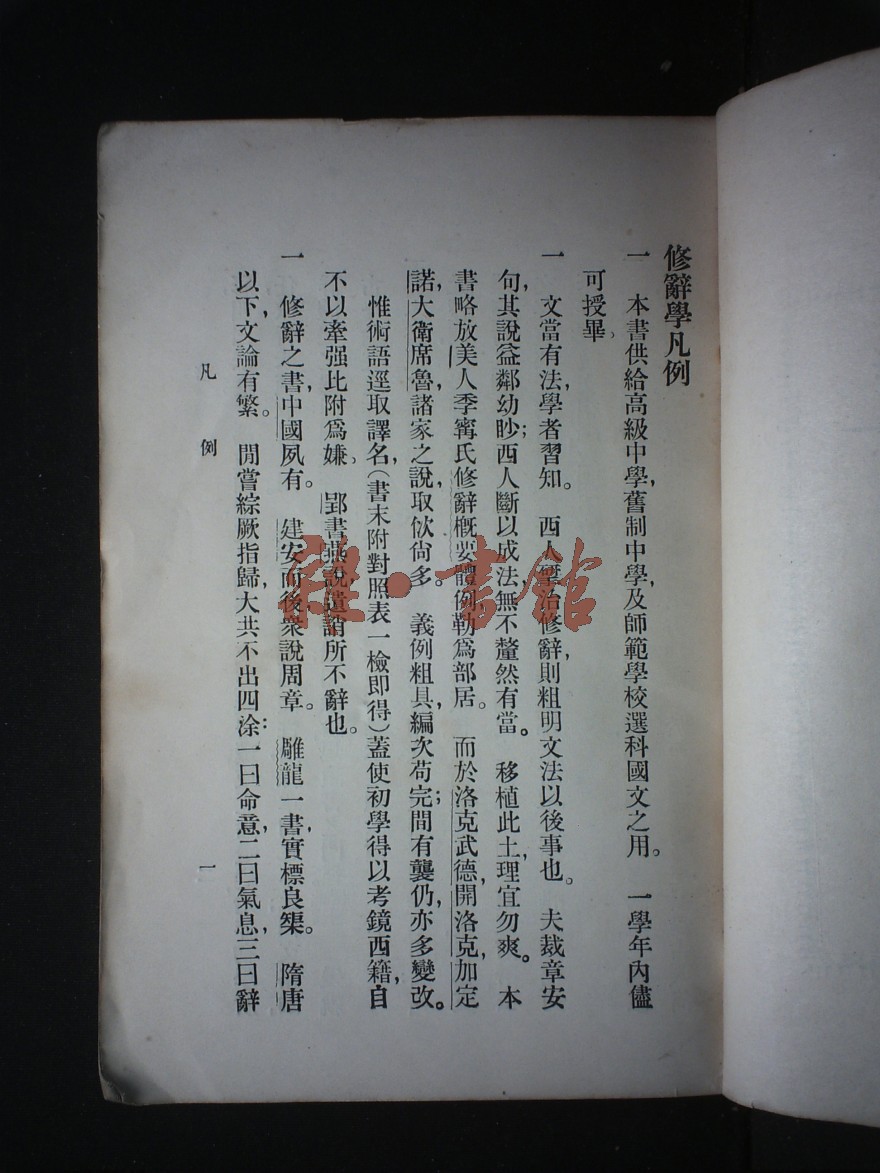 修辭學凡例
一　本書供給高級中學，舊制中學，及師範學校選科國文之用。　一學年內儘
可授畢。
一　文當有法，學者習知。　西人擘治修辭，則粗明文法以後事也。　夫裁章安
句，其說益鄰幼眇；西人斷以成法，無不釐然有當。　移植此土，理宜勿爽。　本
書略放美人季寗氏修辭概要體例，勒爲部居。　而於洛克武德，開洛克，加定
諾，大衛席魯諸家之說，取佽尙多。　義例粗具，編次苟完；間有襲仍，亦多變改。
惟術語逕取譯名，（書末附對照表一檢即得）蓋使初學得以考鏡西籍，自
不以牽强比附爲嫌。　郢書燕說，遺誚所不辭也。
一　修辭之書，中國夙有。　建安而後，衆說周章。　雕龍一書，實標良榘。　隋唐
以下，文論有繁。　閒嘗綜厥指歸，大共不出四涂：一曰命意，二曰氣息，三曰辭
凡　例　一
雒·書館